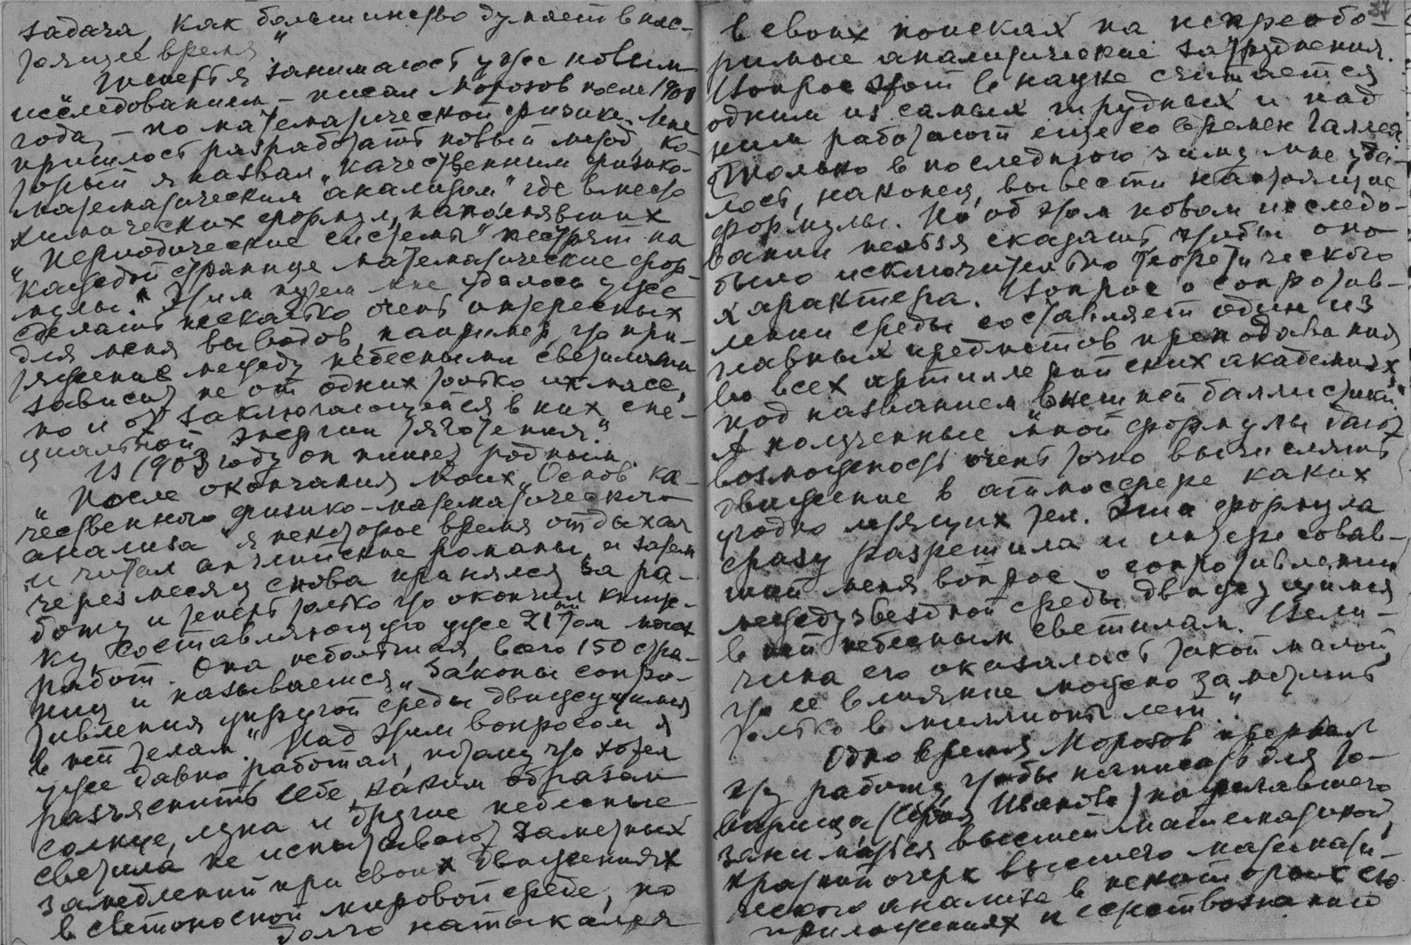 задача, как большинство думает в нас-
тоящее время"
"Теперь я занимаюсь уже новым
исследованием, – писал Морозов после 1901
года, – по математической физике. Мне
пришлось разработать новый метод, ко-
торый я назвал „качественным физико-
математическим анализом" где вместо
химических формул, наполнявших
"периодические системы" пестрят на
каждой странице математические фор-
мулы." Этим путем мне удалось уже
сделать несколько очень интересных
для меня выводов, например, что при-
тяжение между небесными светилами
зависит не от одних только их масс,
но и от заключающейся в них спе-
циальной энергии тяготения."
В 1903 году он пишет родным.
"После окончания моих „Основ ка-
чественного физико-математического
анализа" я некоторое время отдыхал
и читал английские романы, а затем
через месяц снова принялся за ра-
боту и теперь только что окончил книж-
ку, составляющую уже 21ый том моих
работ. Она небольшая, всего 150 стра-
ниц и называется „Законы сопро-
тивления упругой среды движущимся
в ней телам." Над этим вопросом я
уже давно работал, потому что хотел
разъяснить себе, каким образом
солнце, луна и другие небесные
светила не испытывают заметных
замедлений при своих движениях
в светоносной мировой среде, но
долго натыкался
37
в своих поисках на непреобо-
римые аналитические затруднения.
Вопрос этот в науке считается
одним из самых трудных и над
ним работают еще со времен Галилея
Только в последнюю зиму мне уда-
лось, наконец, вывести настоящие
формулы. Но об этом новом исследо-
вании нельзя сказать, чтобы оно
было исключительно теоретического
характера. Вопрос о сопротив-
лении среды составляет один из
главных предметов преподавания
во всех артиллерийских академиях
под названием „внешней баллистики"
А полученные мной формулы дают
возможность очень точно вычислять
движение в атмосфере каких
угодно летящих тел. Эта формула
сразу разрешила и интересовав-
ший меня вопрос о сопротивлении
междузвездной среды движущимся
в ней небесным светилам. Вели-
чина его оказалась такой малой,
что ее влияние можно заметить
только в миллионы лет."
Одно время Морозов прервал
эту работу чтобы написать для то-
варища (Сергея Иванова) пожелавшего
заниматься высшей математикой,
краткий очерк высшего математи-
ческого анализа в некоторых его
приложениях к естествознанию